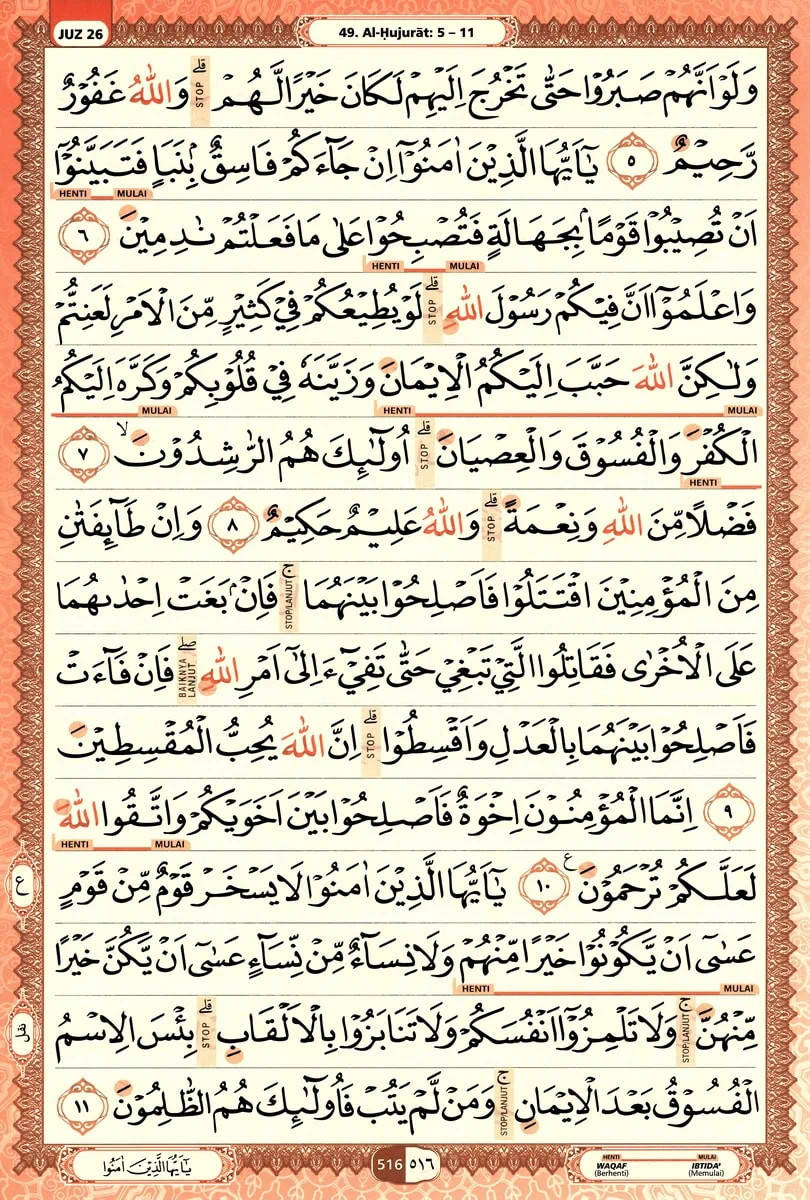 JUZ 26
49. Al-Ḥujurāt: 5 – 11
وَلَوْ اَنَّهُمْ صَبَرُوْا حَتّٰى تَخْرُجَ اِلَيْهِمْ لَكَانَ خَيْرًا لَّهُمْ ۗ STOP وَاللّٰهُ غَفُوْرٌ
رَّحِيْمٌ ٥ يٰٓاَيُّهَا الَّذِيْنَ اٰمَنُوْٓا اِنْ جَاۤءَكُمْ فَاسِقٌۢ بِنَبَاٍ فَتَبَيَّنُوْٓا
HENTI MULAI
اَنْ تُصِيْبُوْا قَوْمًاۢ بِجَهَالَةٍ فَتُصْبِحُوْا عَلٰى مَا فَعَلْتُمْ نٰدِمِيْنَ ٦
HENTI MULAI
وَاعْلَمُوْٓا اَنَّ فِيْكُمْ رَسُوْلَ اللّٰهِ ۗ STOP لَوْ يُطِيْعُكُمْ فِيْ كَثِيْرٍ مِّنَ الْاَمْرِ لَعَنِتُّمْ
وَلٰكِنَّ اللّٰهَ حَبَّبَ اِلَيْكُمُ الْاِيْمَانَ وَزَيَّنَهٗ فِيْ قُلُوْبِكُمْ وَكَرَّهَ اِلَيْكُمُ
MULAI HENTI MULAI
الْكُفْرَ وَالْفُسُوْقَ وَالْعِصْيَانَ ۗ STOP اُولٰۤىِٕكَ هُمُ الرّٰشِدُوْنَ ۙ ٧
HENTI
فَضْلًا مِّنَ اللّٰهِ وَنِعْمَةً ۗ STOP وَاللّٰهُ عَلِيْمٌ حَكِيْمٌ ٨ وَاِنْ طَاۤىِٕفَتٰنِ
مِنَ الْمُؤْمِنِيْنَ اقْتَتَلُوْا فَاَصْلِحُوْا بَيْنَهُمَا ۚ STOP/LANJUT فَاِنْۢ بَغَتْ اِحْدٰىهُمَا
عَلَى الْاُخْرٰى فَقَاتِلُوا الَّتِيْ تَبْغِيْ حَتّٰى تَفِيْۤءَ اِلٰٓى اَمْرِ اللّٰهِ ۖ BAIKNYA LANJUT فَاِنْ فَاۤءَتْ
فَاَصْلِحُوْا بَيْنَهُمَا بِالْعَدْلِ وَاَقْسِطُوْا ۗ STOP اِنَّ اللّٰهَ يُحِبُّ الْمُقْسِطِيْنَ
٩ اِنَّمَا الْمُؤْمِنُوْنَ اِخْوَةٌ فَاَصْلِحُوْا بَيْنَ اَخَوَيْكُمْ وَاتَّقُوا اللّٰهَ
HENTI MULAI
لَعَلَّكُمْ تُرْحَمُوْنَ ع ١٠ يٰٓاَيُّهَا الَّذِيْنَ اٰمَنُوْا لَا يَسْخَرْ قَوْمٌ مِّنْ قَوْمٍ
ع
عَسٰٓى اَنْ يَّكُوْنُوْا خَيْرًا مِّنْهُمْ وَلَا نِسَاۤءٌ مِّنْ نِّسَاۤءٍ عَسٰٓى اَنْ يَّكُنَّ خَيْرًا
HENTI MULAI
مِّنْهُنَّ ۚ STOP/LANJUT وَلَا تَلْمِزُوْٓا اَنْفُسَكُمْ وَلَا تَنَابَزُوْا بِالْاَلْقَابِ ۗ STOP بِئْسَ الِاسْمُ
نقل
الْفُسُوْقُ بَعْدَ الْاِيْمَانِ ۚ STOP/LANJUT وَمَنْ لَّمْ يَتُبْ فَاُولٰۤىِٕكَ هُمُ الظّٰلِمُوْنَ ١١
يٰٓاَيُّهَا الَّذِيْنَ اٰمَنُوْا
516 ٥١٦
HENTI MULAI
WAQAF IBTIDA'
(Berhenti) (Memulai)